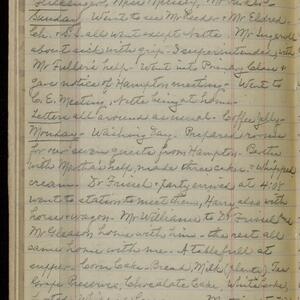 Sunday. Went to see Mr. Reeder + Mr. Eldred.
Ch. + S.S. all went except Nette. Mr. Ingersoll
about sick with grip. I superintended, with
Mr. Fuller's help. Went into Primary Class &
gave notices of Hampton meeting. Went to
C. E. Meeting, Nette being at home.
Letters all around as usual. Coffee jelly.
Monday. Washing Day. Prepared rooms
for our seven guests from Hampton. Bertha
with Martha's help, made three cakes. Whipped
cream. Dr Frissel + party arrived at 4'08
went to station to meet them, Harry also with
horse + wagon. Mr Williams to Dr Frissel and
Mr Gleason home with him - the rest all
came home with me. A table full at
supper. Corn Cake. Bread, Milk (plenty), Tea
Grape Preserve, Chocolate Cake, White Cake,